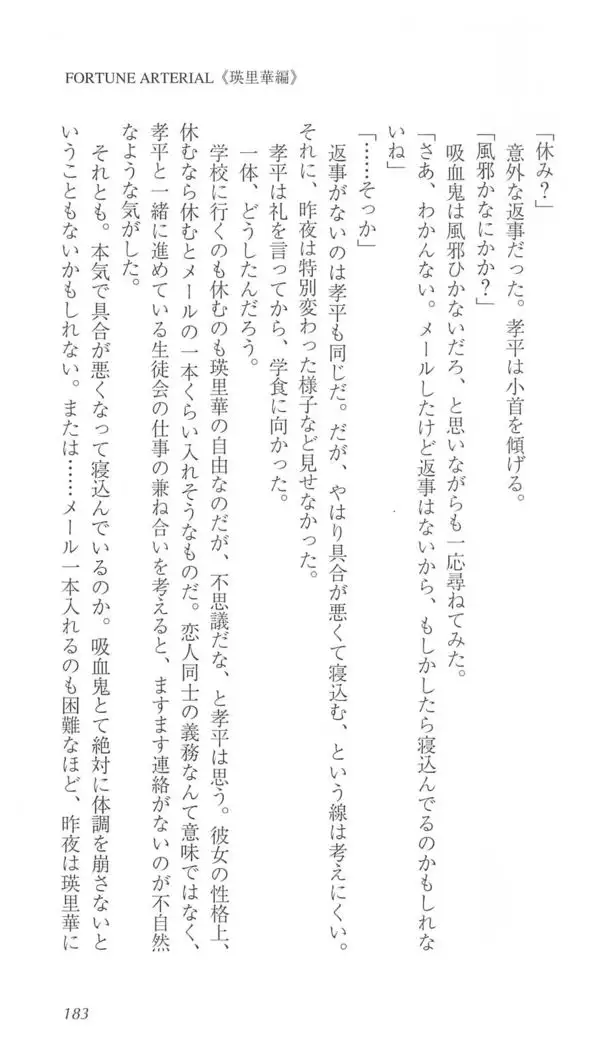 FORTUNE ARTERIAL《瑛里華編》
「休み?」
意外な返事だった。孝平は小首を傾げる。
「風邪かなにかか?」
吸血鬼は風邪ひかないだろ、と思いながらも一応尋ねてみた。
「さあ、わかんない。メールしたけど返事はないから、もしかしたら寝込んでるのかもしれな
いね」
「……そっか」
返事がないのは孝平も同じだ。だが、やはり具合が悪くて寝込む、という線は考えにくい。
それに、昨夜は特別変わった様子など見せなかった。
孝平は礼を言ってから、学食に向かった。
一体、どうしたんだろう。
学校に行くのも休むのも瑛里華の自由なのだが、不思議だな、と孝平は思う。彼女の性格上、
休むなら休むとメールの一本くらい入れそうなものだ。恋人同士の義務なんて意味ではなく、
孝平と一緒に進めている生徒会の仕事の兼ね合いを考えると、ますます連絡がないのが不自然
なような気がした。
それとも。本気で具合が悪くなって寝込んでいるのか。吸血鬼とて絶対に体調を崩さないと
いうこともないかもしれない。または……メール一本入れるのも困難なほど、昨夜は瑛里華に
183